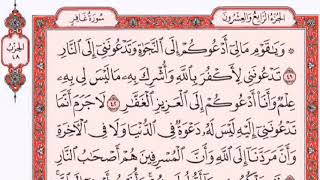 الجزء الرابع والعشرون
سورة غافر
الحزب ٤٨
وَيَٰقَوْمِ مَالِىٓ أَدْعُوكُمْ إِلَى ٱلنَّجَوٰةِ وَتَدْعُونَنِىٓ إِلَى ٱلنَّارِ
٤١ تَدْعُونَنِى لِأَكْفُرَ بِٱللَّهِ وَأُشْرِكَ بِهِۦ مَالَيْسَ لِى بِهِۦ
عِلْمٌ وَأَنَا۠ أَدْعُوكُمْ إِلَى ٱلْعَزِيزِ ٱلْغَفَّٰرِ ٤٢ لَاجَرَمَ أَنَّمَا
تَدْعُونَنِىٓ إِلَيْهِ لَيْسَ لَهُۥ دَعْوَةٌ فِى ٱلدُّنْيَا وَلَا فِى ٱلْءَاخِرَةِ
وَأَنَّ مَرَدَّنَآ إِلَى ٱللَّهِ وَأَنَّ ٱلْمُسْرِفِينَ هُمْ أَصْحَٰبُ ٱلنَّارِ